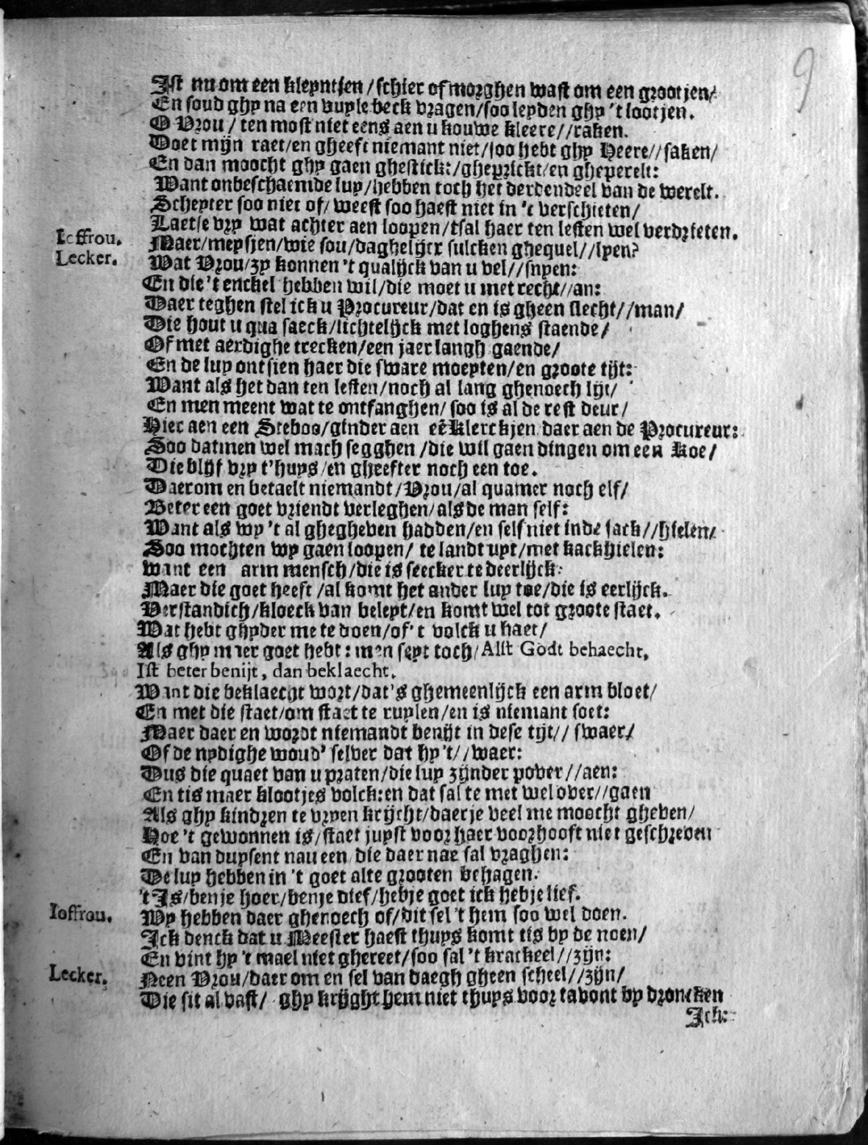 9
Ist nu om een kleyntjen/schier of morghen wast om een grootjen/
En soud ghy na een vuyle beck vragen/soo leyden ghy 't lootjen.
O Vrou/ ten most niet eens aen u kouwe kleere//raken.
Doet mijn raet/en gheeft niemant niet/soo hebt ghy Heere//saken/
En dan moocht ghy gaen ghestickt/gheprickt/en gheperelt:
Want onbeschaemde luy/hebben toch het derdendeel van de werelt.
Schepter soo niet of/ weest soo haest niet in 't verschieten/
Laetse vry wat achter aen loopen/tsal haer ten lesten wel verdrieten.
Ioffrou. Maer/meysjen/wie sou/daghelijcx sulcken ghequel//lyen?
Lecker. Wat Vrou/zy konnen 't qualijck van u vel//snyen:
En die 't enckel hebben wil/die moet u met recht//an:
Daer teghen stel ick u Procureur/dat en is gheen slecht//man/
Die hout u qua saeck/lichtelijck met loghens staende/
Of met aerdighe trecken/een jaer langh gaende/
En de luy ontsien haer die sware moeyten/en groote tijt:
Want als het dan ten lesten/noch al lang ghenoech lijt/
En men meent wat te ontfanghen/ soo is al de rest deur/
Hier aen een Steboo/ginder aen eē Klerckjen daer aen de Procureur:
Soo datmen wel mach segghen /die wil gaen dingen om een Koe/
Die blijf vry t'huys/en gheefter noch een toe.
Daerom en betaelt niemandt/Vrou/al quamer noch elf/
Beter een goet vriendt verleghen/als de man self:
Want als wy 't al ghegheven hadden/en self niet inde sack//hielen/
Soo mochten wy gaen loopen/ te landt uyt/met kackhielen:
Want een arm mensch/die is seecker te deerlijck:
Maer die goet heeft /al komt het ander luy toe/die is eerlijck.
Verstandich/kloeck van beleyt/en komt wel tot groote staet.
Wat hebt ghyder me te doen/of 't volck u haet/
Als ghy maer goet hebt: men seyt toch/Alst Godt behaecht,
Ist beter benijt, dan beklaecht.
Want die beklaecht wort/dat's ghemeenlijck een arm bloet/
En met die staet/om staet te ruylen/en is niemant soet:
Maer daer en wordt niemandt benijt in dese tijt// swaer/
Of de nydighe woud' selver dat hy 't//waer:
Dus die quaet van u praten/die luy zijnder pover//aen:
En tis maer klootjes volck:en dat sal te met wel over//gaen
Als ghy kindren te vryen krijcht/daer je veel me moocht gheven/
Hoe 't gewonnen is/staet juyst voor haer voorhooft niet geschreven
En van duysent nau een die daer nae sal vraghen:
De luy hebben in 't goet alte grooten behagen.
't Is/ben je hoer/ben je dief/heb je goet ick heb je lief.
Ioffrou. Wy hebben daer ghenoech of/dit sel 't hem soo wel doen.
Ick denck dat u Meester haest thuys komt tis by de noen/
En vint hy 't mael niet ghereet/soo sal 't krackeel//zijn:
Lecker. Neen Vrou/daer om en sel van daegh gheen scheel//zijn/
Die sit al vast/ ghy krijght hem niet thuys voor tavont by droncken
Ick: